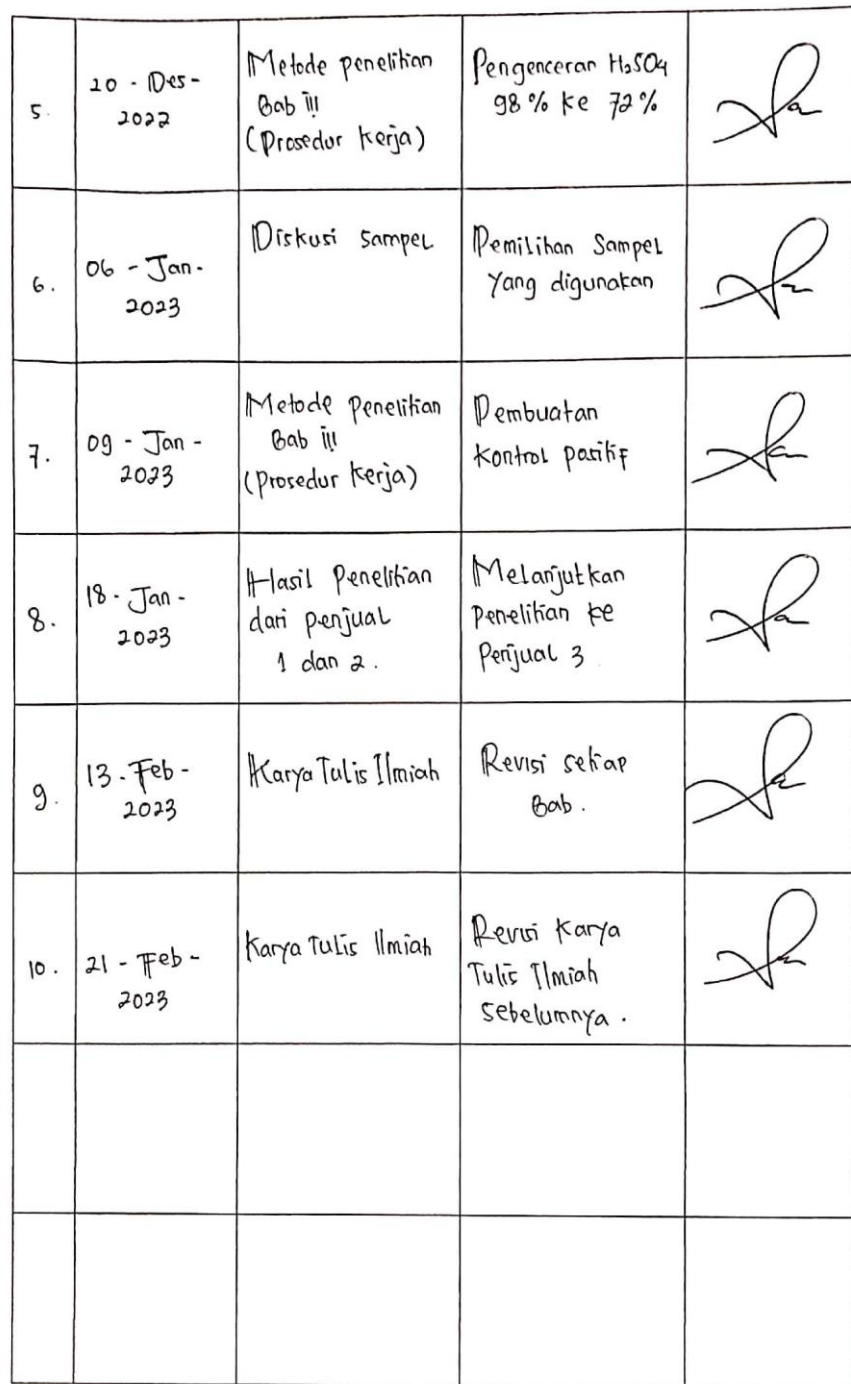 5.
20 - Des -
2022
Metode penelitian
Bab iii
(Prosedur Kerja)
Pengenceran H2SO4
98 % ke 72 %
6.
06 - Jan -
2023
Diskusi Sampel
Pemilihan Sampel
Yang digunakan
7.
09 - Jan -
2023
Metode Penelitian
Bab iii
(Prosedur Kerja)
Pembuatan
Kontrol positif
8.
18 - Jan -
2023
Hasil Penelitian
dari penjual
1 dan 2.
Melanjutkan
Penelitian ke
Penjual 3
9.
13 - Feb -
2023
Karya Tulis Ilmiah
Revisi setiap
Bab.
10.
21 - Feb -
2023
Karya Tulis Ilmiah
Revisi Karya
Tulis Ilmiah
Sebelumnya.